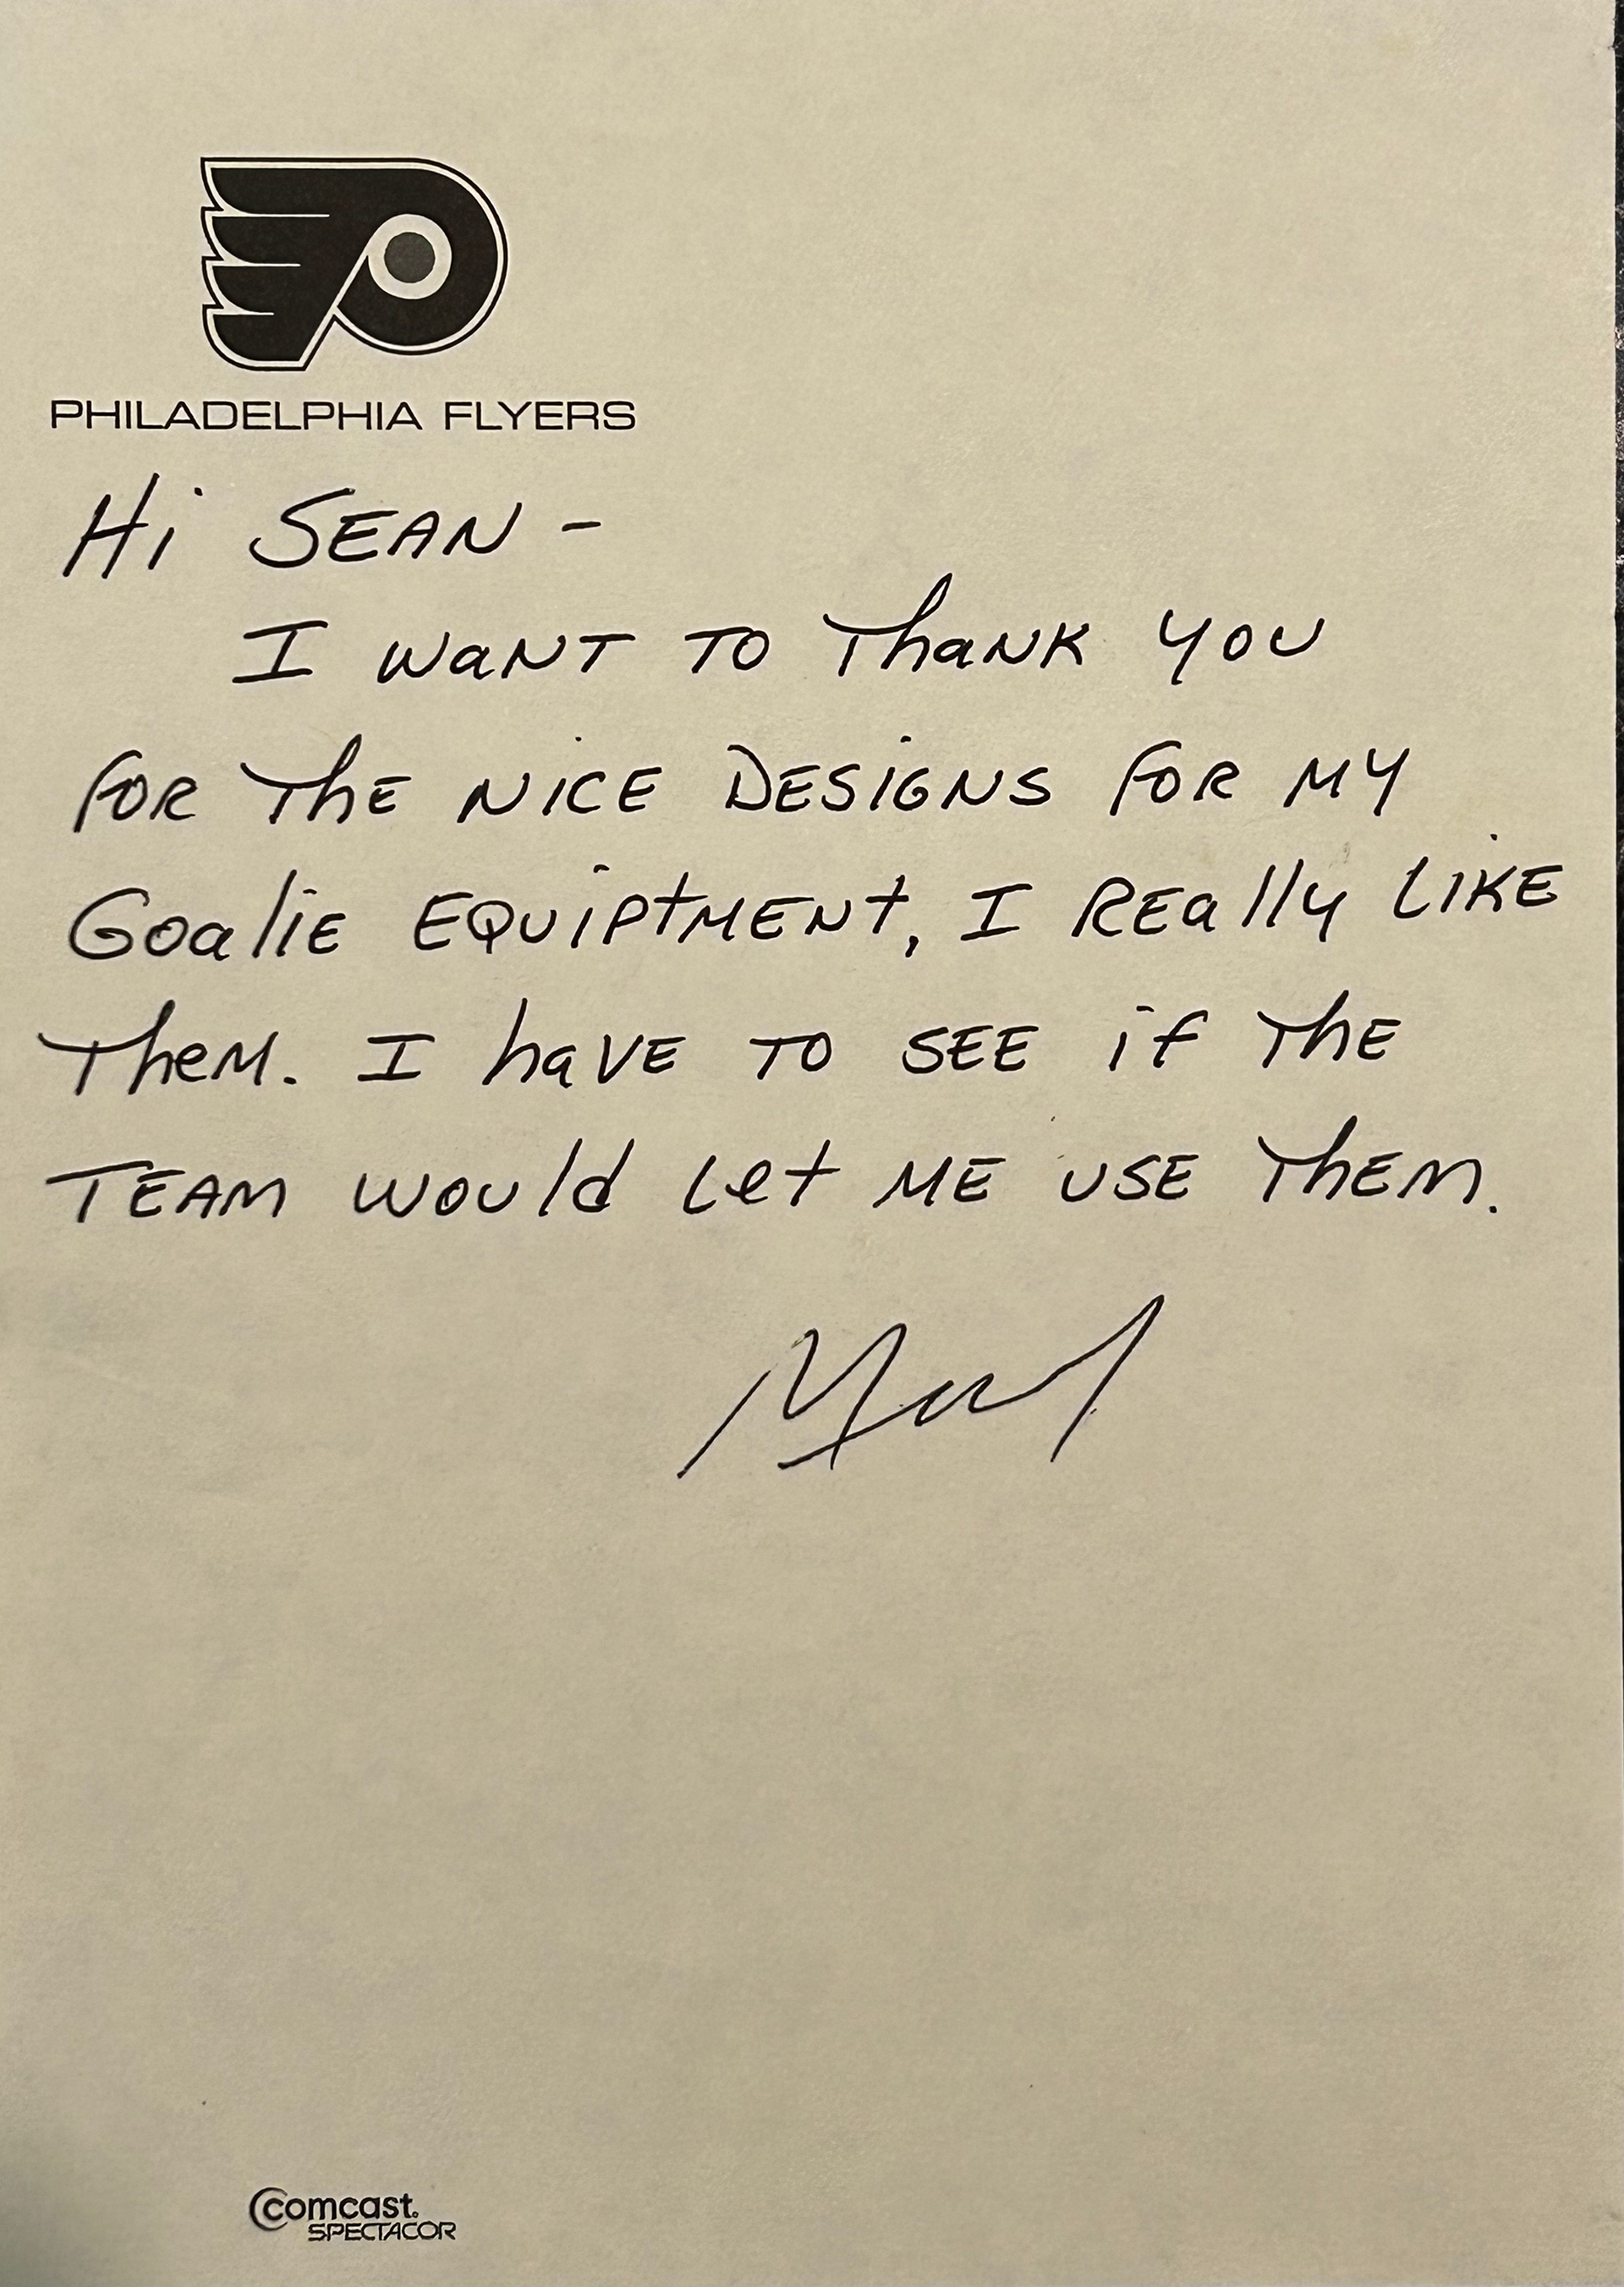 PHILADELPHIA FLYERS
Hi SEAN -
I WaNT TO ThaNK YOU
FOR ThE NiCE DESiGNS FOR MY
GoaliE EQUiPtMENt, I REally LiKE
TheM. I haVE TO SEE if ThE
TEAM WOUld Let ME USE ThEM.
comcast.
SPECTACOR